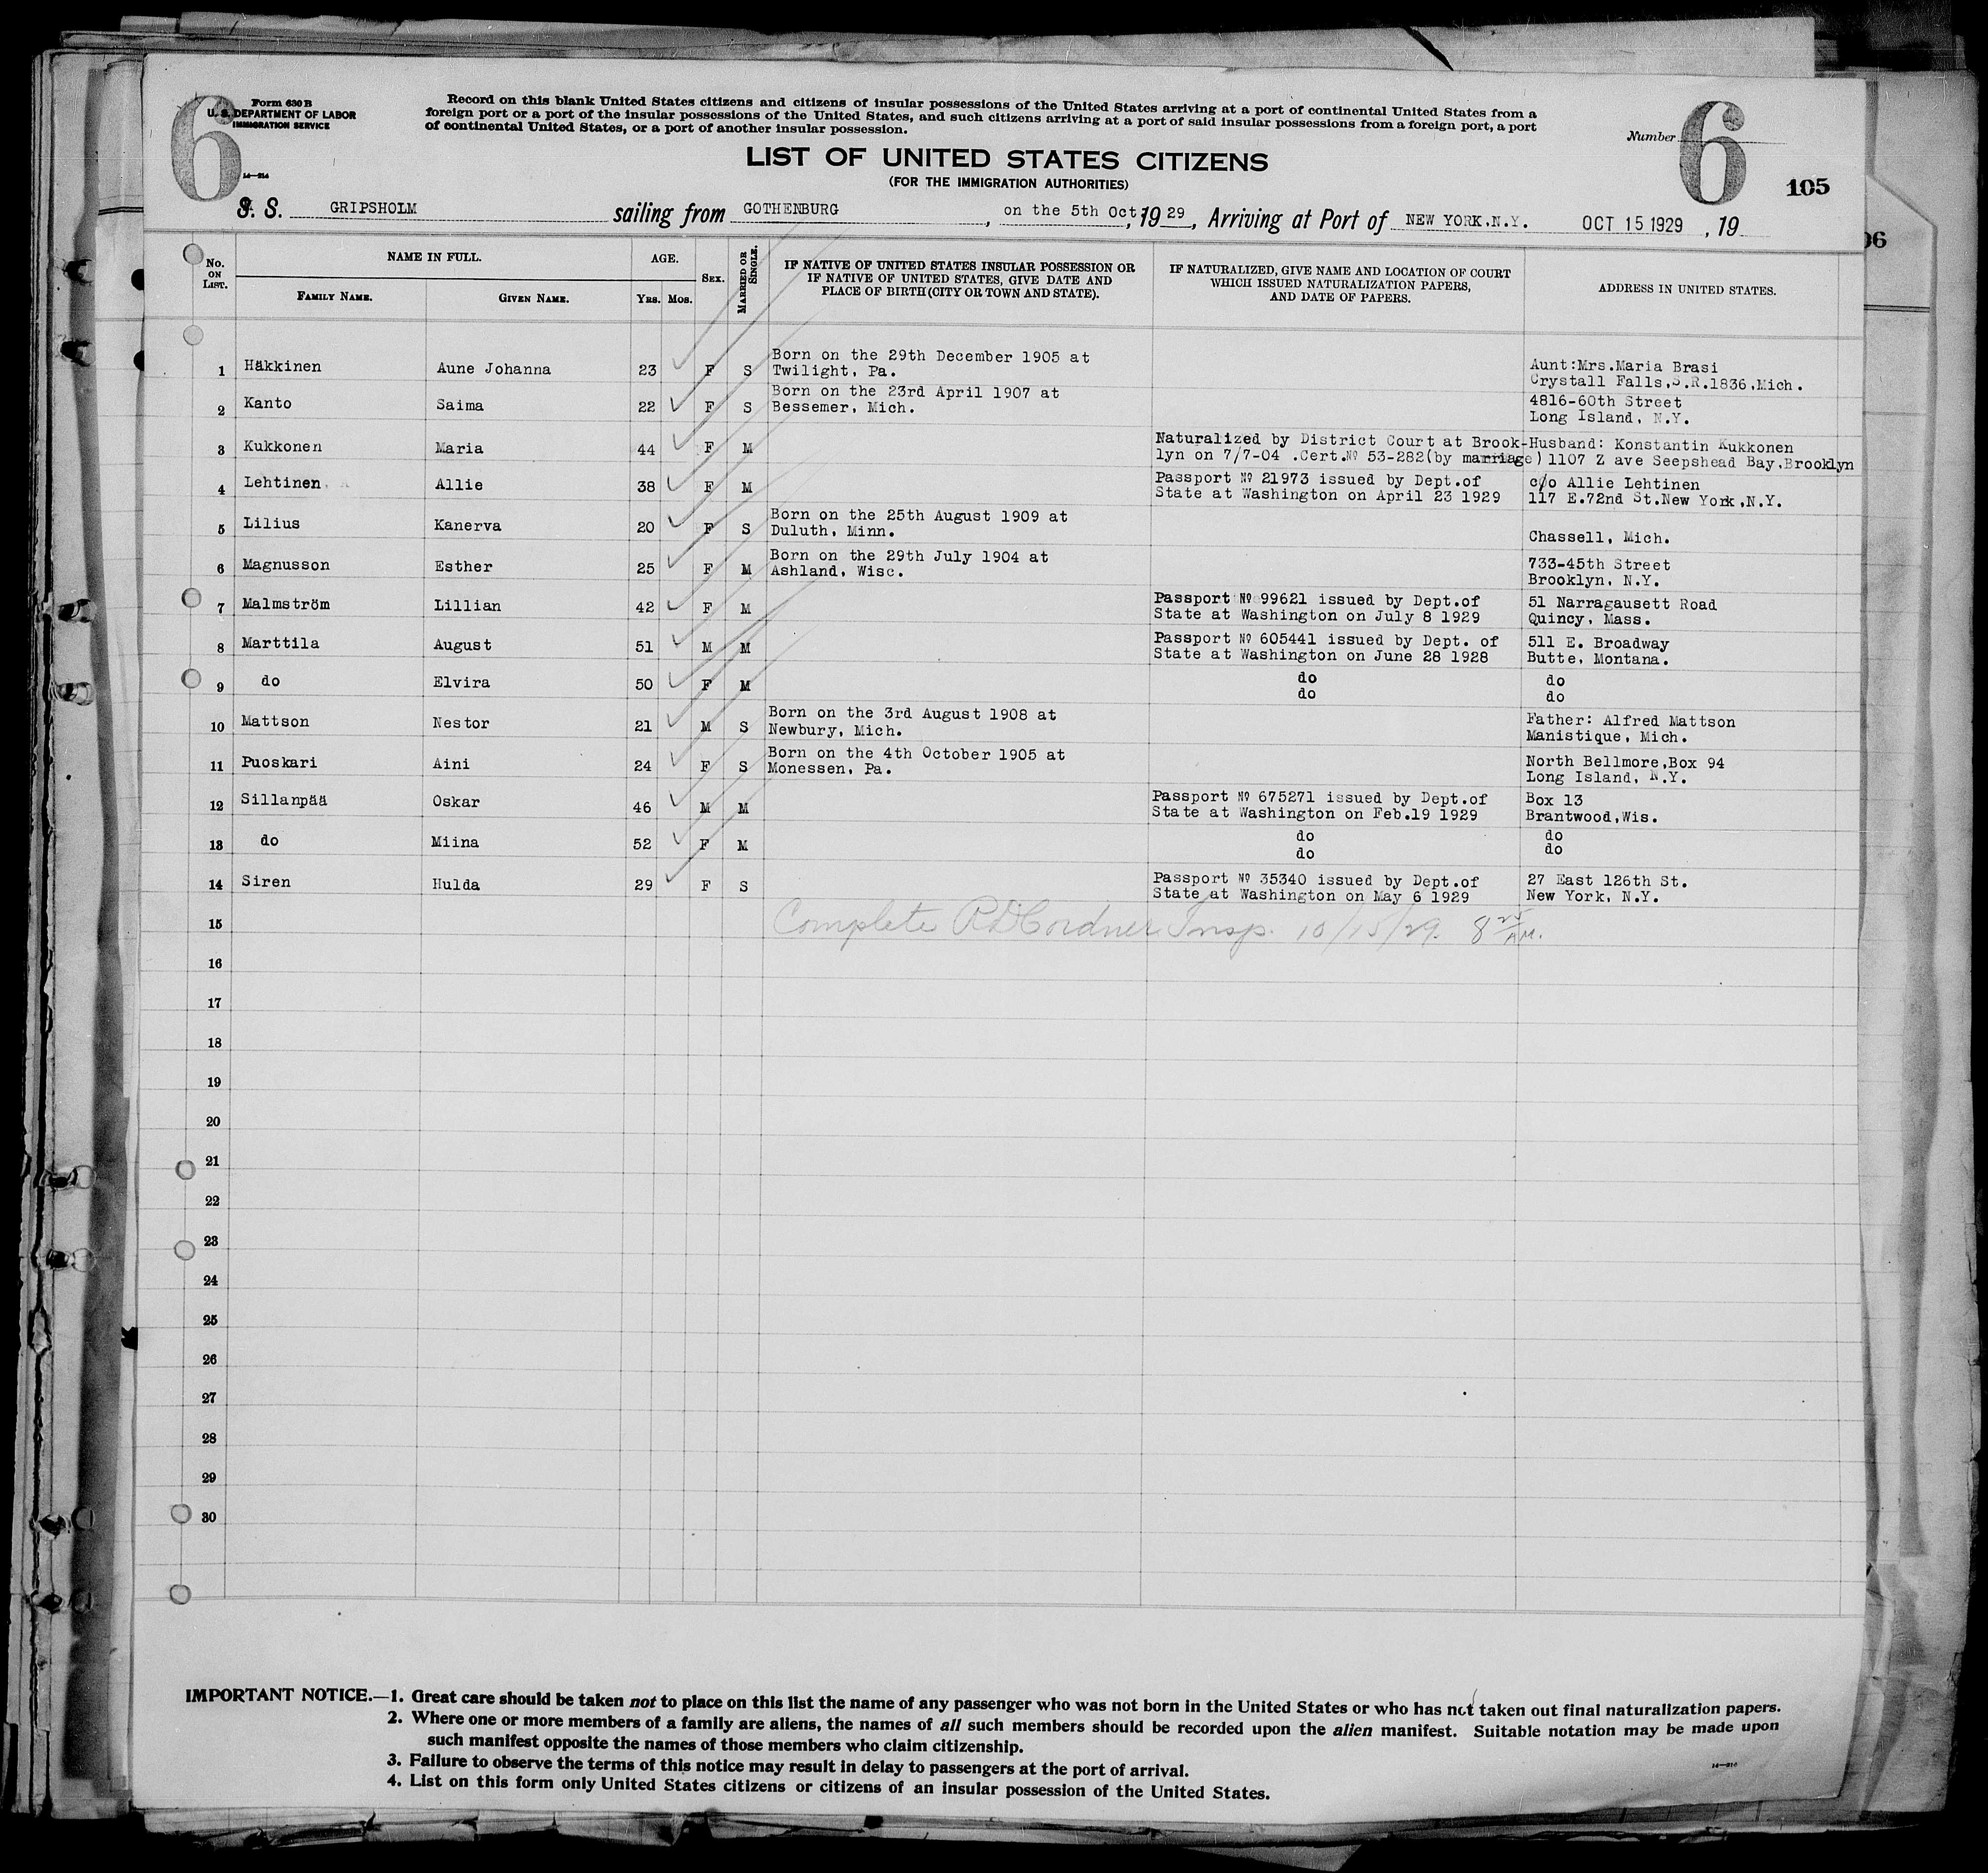 6
Form 630 B
U. S. DEPARTMENT OF LABOR
IMMIGRATION SERVICE
14—214
Record on this blank United States citizens and citizens of insular possessions of the United States arriving at a port of continental United States from a
foreign port or a port of the insular possessions of the United States, and such citizens arriving at a port of said insular possessions from a foreign port, a port
of continental United States, or a port of another insular possession.
Number 6
105
LIST OF UNITED STATES CITIZENS
(FOR THE IMMIGRATION AUTHORITIES)
S. S. GRIPSHOLM sailing from GOTHENBURG, on the 5th Oct, 1929, Arriving at Port of NEW YORK.N.Y. OCT 15 1929, 19
06
No. ON LIST. NAME IN FULL. FAMILY NAME. GIVEN NAME. AGE. YRS. MOS. SEX. MARRIED OR SINGLE.
IF NATIVE OF UNITED STATES INSULAR POSSESSION OR
IF NATIVE OF UNITED STATES, GIVE DATE AND
PLACE OF BIRTH (CITY OR TOWN AND STATE).
IF NATURALIZED, GIVE NAME AND LOCATION OF COURT
WHICH ISSUED NATURALIZATION PAPERS,
AND DATE OF PAPERS.
ADDRESS IN UNITED STATES.
1 Häkkinen Aune Johanna 23 F S Born on the 29th December 1905 at Aunt:Mrs.Maria Brasi
Twilight, Pa. Crystall Falls,S.R.1836,Mich.
2 Kanto Saima 22 F S Born on the 23rd April 1907 at 4816-60th Street
Bessemer, Mich. Long Island, N.Y.
3 Kukkonen Maria 44 F M Naturalized by District Court at Brook- Husband: Konstantin Kukkonen
lyn on 7/7-04 .Cert.No 53-282(by marriage) 1107 Z ave Seepshead Bay.Brooklyn
4 Lehtinen Allie 38 F M Passport No 21973 issued by Dept.of c/o Allie Lehtinen
State at Washington on April 23 1929 117 E.72nd St.New York,N.Y.
5 Lilius Kanerva 20 F S Born on the 25th August 1909 at
Duluth, Minn. Chassell, Mich.
6 Magnusson Esther 25 F M Born on the 29th July 1904 at 733-45th Street
Ashland, Wisc. Brooklyn, N.Y.
7 Malmström Lillian 42 F M Passport No 99621 issued by Dept.of 51 Narragausett Road
State at Washington on July 8 1929 Quincy, Mass.
8 Marttila August 51 M M Passport No 605441 issued by Dept. of 511 E. Broadway
State at Washington on June 28 1928 Butte, Montana.
9 do Elvira 50 F M do do
do do
10 Mattson Nestor 21 M S Born on the 3rd August 1908 at Father: Alfred Mattson
Newbury, Mich. Manistique, Mich.
11 Puoskari Aini 24 F S Born on the 4th October 1905 at North Bellmore,Box 94
Monessen, Pa. Long Island, N.Y.
12 Sillanpää Oskar 46 M M Passport No 675271 issued by Dept.of Box 13
State at Washington on Feb.19 1929 Brantwood,Wis.
13 do Miina 52 F M do do
do do
14 Siren Hulda 29 F S Passport No 35340 issued by Dept.of 27 East 126th St.
State at Washington on May 6 1929 New York, N.Y.
15 Complete R D Cordner Insp. 10/15/29. 8 25 AM.
16
17
18
19
20
21
22
23
24
25
26
27
28
29
30
IMPORTANT NOTICE.—1. Great care should be taken not to place on this list the name of any passenger who was not born in the United States or who has not taken out final naturalization papers.
2. Where one or more members of a family are aliens, the names of all such members should be recorded upon the alien manifest. Suitable notation may be made upon
such manifest opposite the names of those members who claim citizenship.
3. Failure to observe the terms of this notice may result in delay to passengers at the port of arrival.
4. List on this form only United States citizens or citizens of an insular possession of the United States.